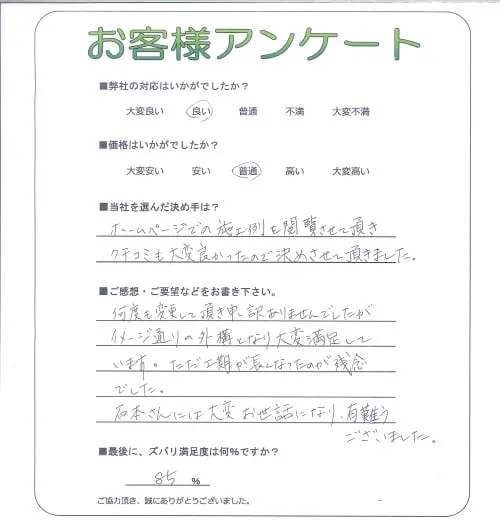 お客様アンケート
■弊社の対応はいかがでしたか?
大変良い 良い 普通 不満 大変不満
■価格はいかがでしたか?
大変安い 安い 普通 高い 大変高い
■当社を選んだ決め手は?
ホームページでの施工例を閲覧させて頂き
クチコミも大変良かったので決めさせて頂きました。
■ご感想・ご要望などをお書き下さい。
何度も変更して頂き申し訳ありませんでしたが
イメージ通りの外構となり大変満足して
います。ただ工期が長くなったのが残念
でした。
石本さんには大変お世話になり、有難う
ございました。
■最後に、ズバリ満足度は何%ですか?
85 %
ご協力頂き、誠にありがとうございました。